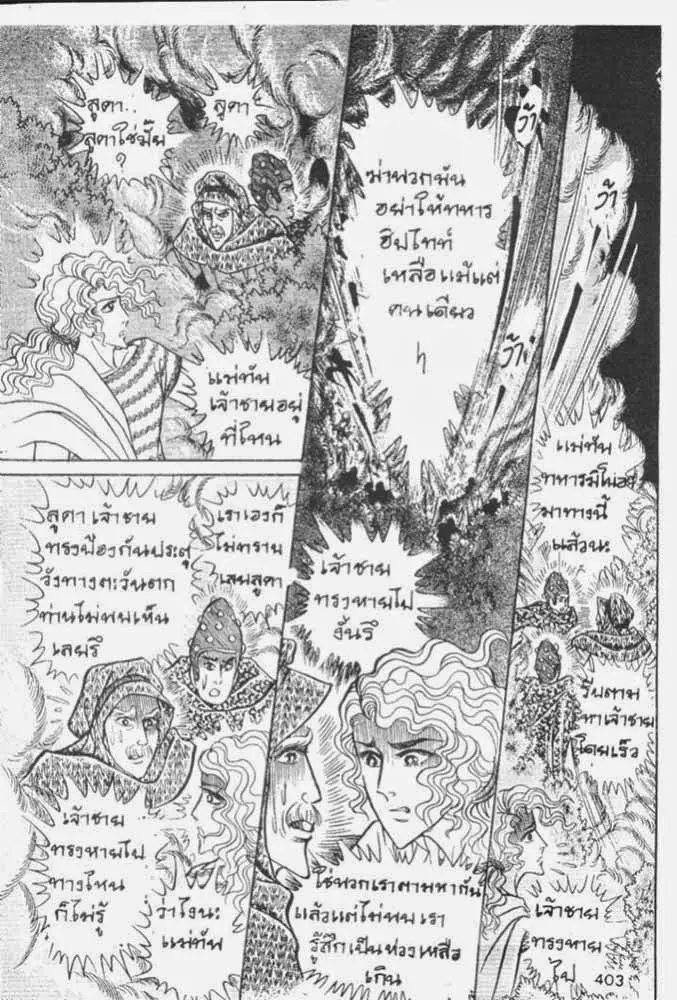 ว๊า
ว๊า
ว๊า
ฆ่าพวกมัน
อย่าให้ทหาร
ฮิปไทท์
เหลือแม้แต่
คนเดียว
ลูคา
ลูคา..
ลูคาใช่มั๊ย
?
แม่ทัพ
เจ้าชายอยู่
ที่ไหน
ลูคา เจ้าชาย
ทรงป้องกันประตู
วังทางตะวันตก
ท่านไม่พบเห็น
เลยรึ
เราเองก็
ไม่ทราบ
เลยลูคา
เจ้าชาย
ทรงหายไป
ทางไหน
ก็ไม่รู้
ว่าไงนะ
แม่ทัพ
เจ้าชาย
ทรงหายไป
งั้นรึ
ใช่พวกเราตามหากัน
แล้วแต่ไม่พบ เรา
รู้สึกเป็นห่วงเหลือ
เกิน
แม่ทัพ
ทหาร
มาทางนี้
แล้วนะ
รีบตาม
หาเจ้าชาย
โดยเร็ว
เจ้าชาย
ทรงหาย
ไป
403